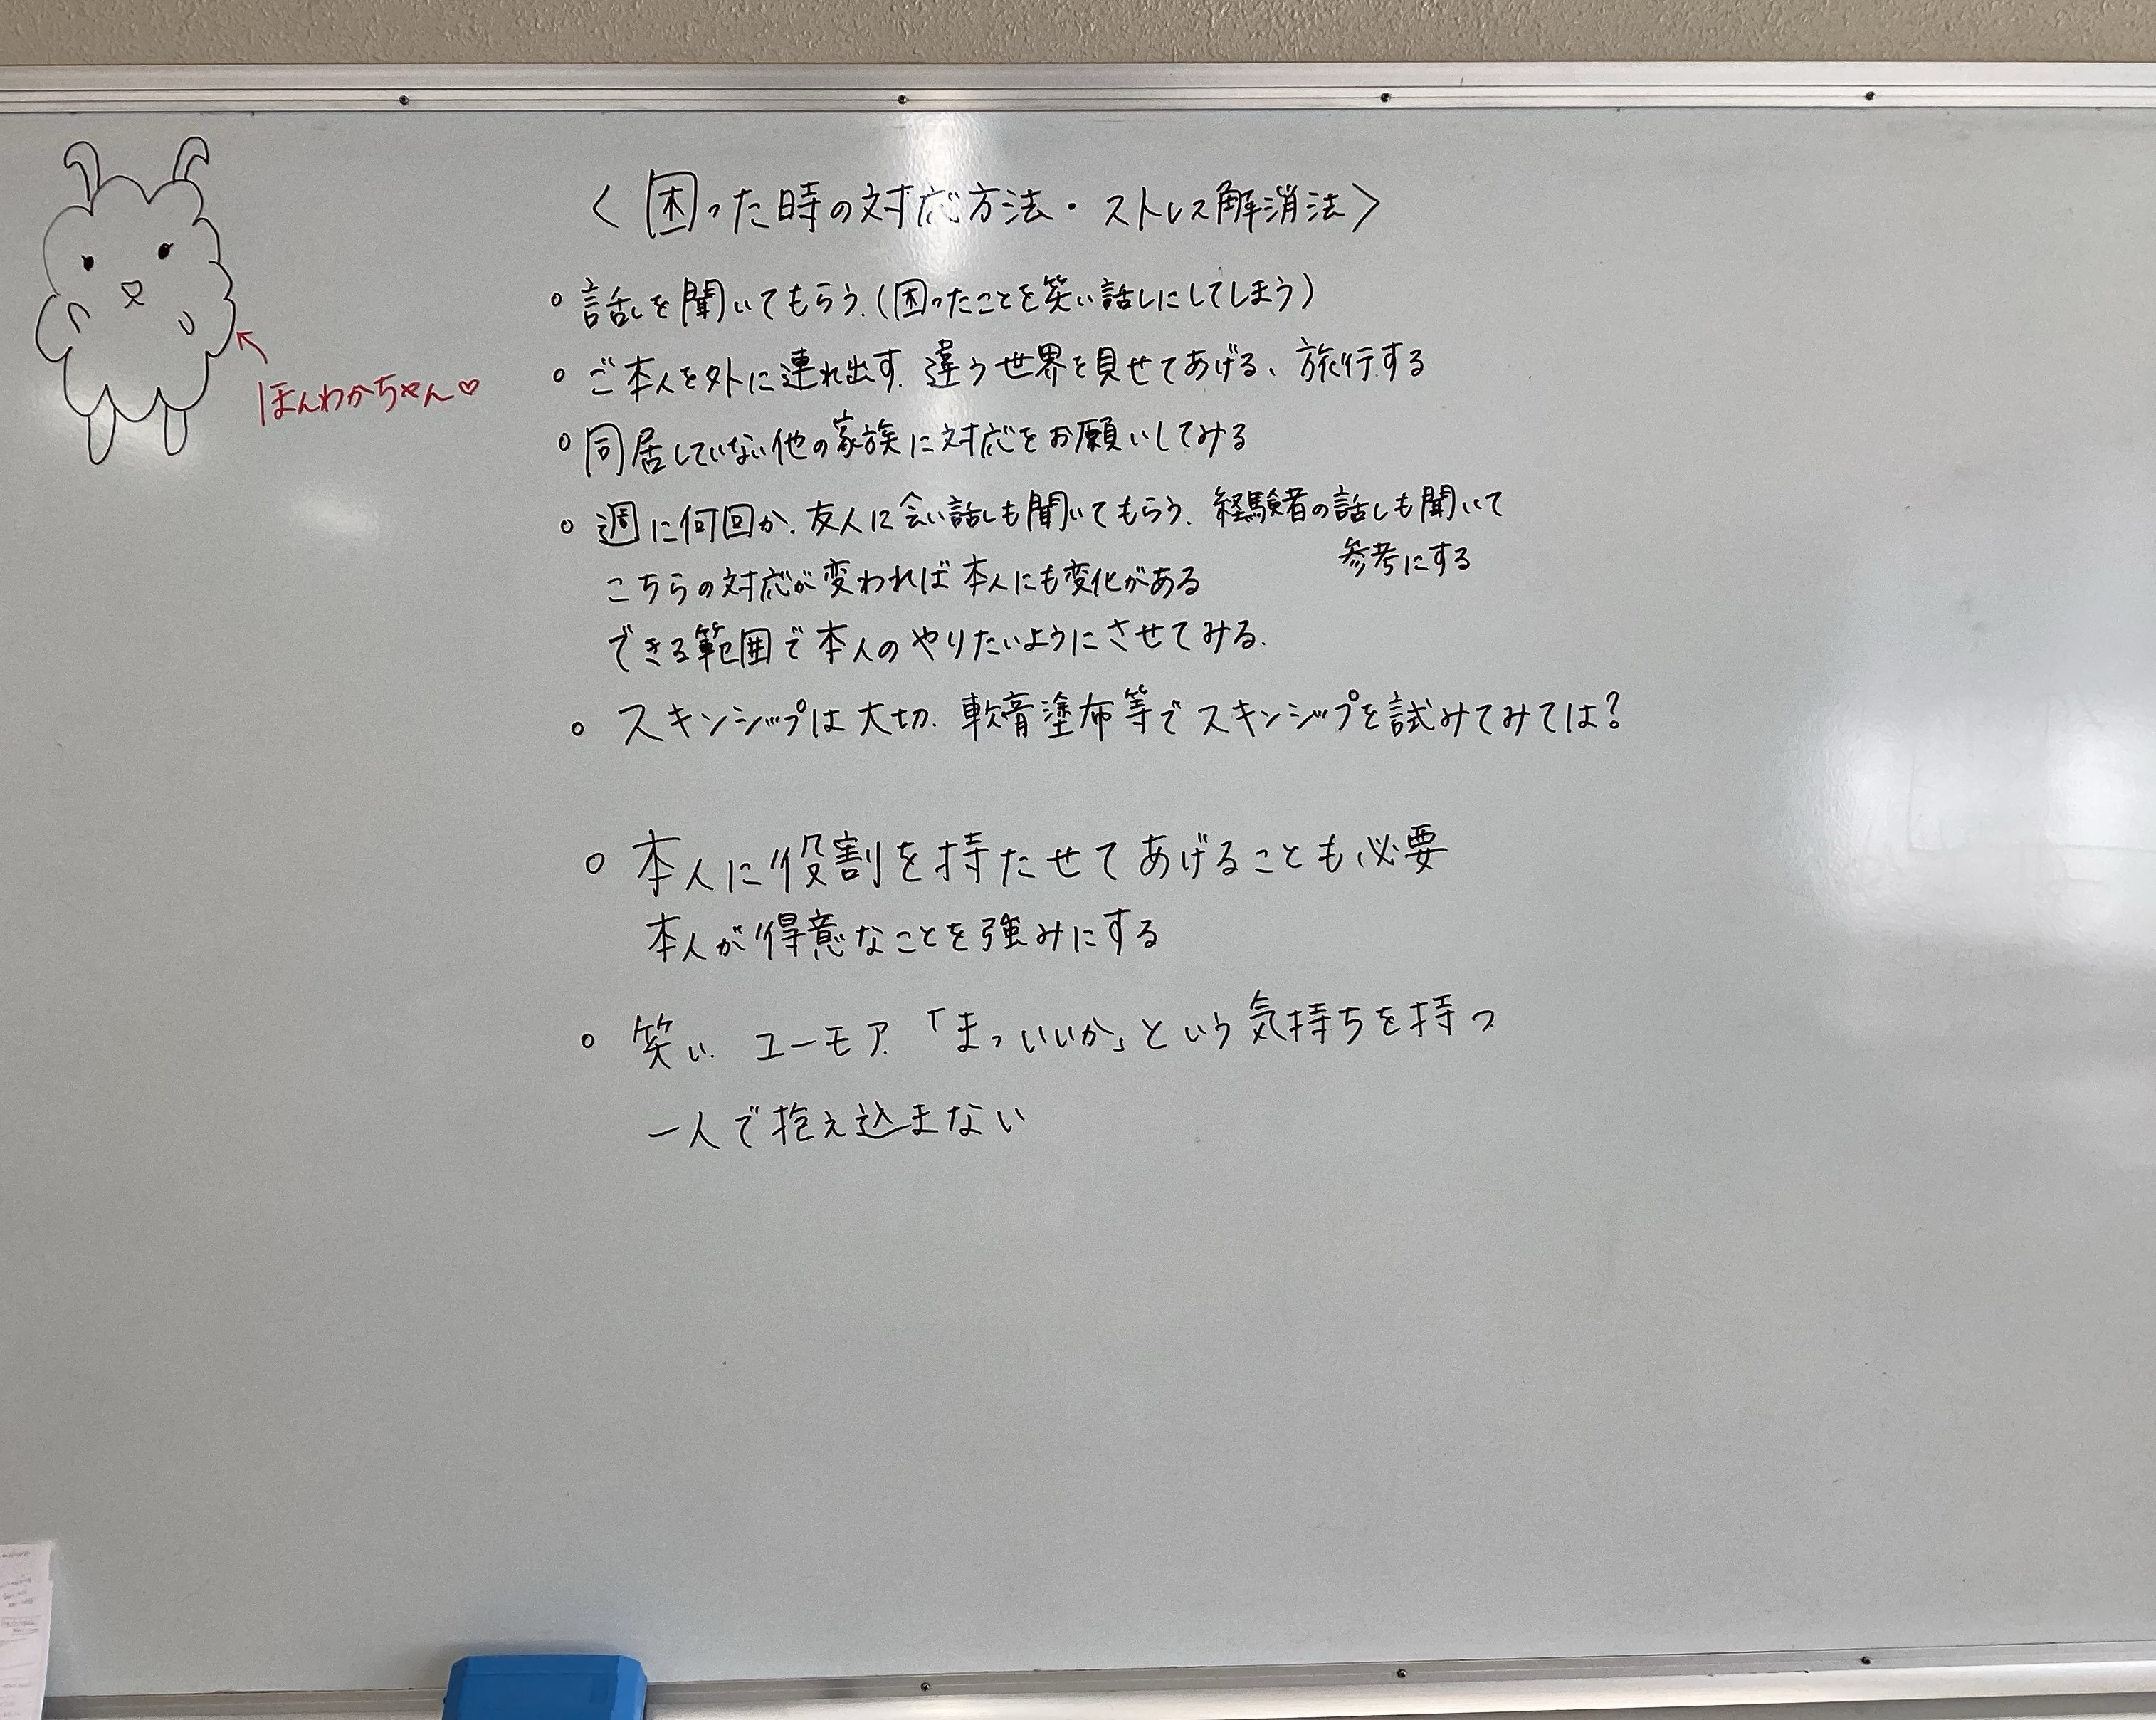 <困った時の対応方法・ストレス解消法>
ほんわかちゃん♡
○ 話しを聞いてもらう.(困ったことを笑い話しにしてしまう)
○ ご本人を外に連れ出す. 違う世界を見せてあげる、旅行する
○ 同居していない他の家族に対応をお願いしてみる
○ 週に何回か. 友人に会い話しも聞いてもらう. 経験者の話しも聞いて
参考にする
こちらの対応が変われば本人にも変化がある
できる範囲で本人のやりたいようにさせてみる.
○ スキンシップは大切. 軟膏塗布等でスキンシップを試みてみては?
○ 本人に役割を持たせてあげることも必要
本人が得意なことを強みにする
○ 笑い. ユーモア.「まっいいか」という気持ちを持つ
一人で抱え込まない